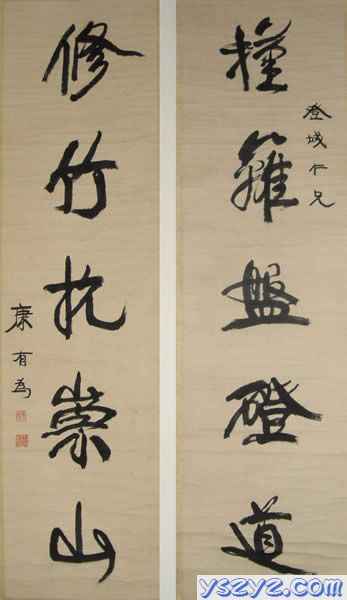 槿籬盤磴道
登城仁兄
修竹抗崇山
康有為
yszyz.com